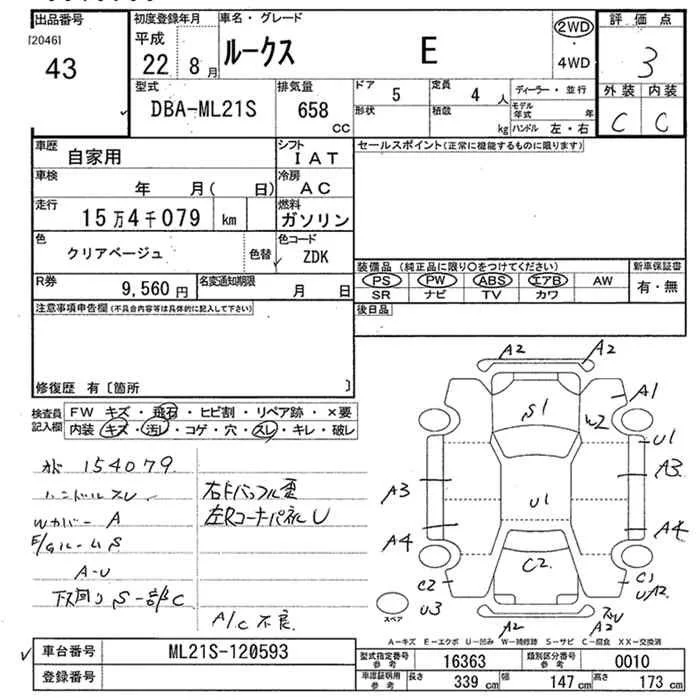 出品番号 初度登録年月 車名・グレード 2WD 評価点
[2046] 平成 ルークス E ・ 3
43 22 8月 4WD
型式 排気量 ドア 5 定員 4人 ディーラー・並行 外装 内装
DBA-ML21S 658 形状 積載 モデル年式 年 C C
CC kg ハンドル 左・右
車歴 自家用 シフト IAT セールスポイント(正常に機能するものに限ります)
車検 年 月( 日) 冷房 AC
走行 15万4千079 km 燃料 ガソリン
色 クリアベージュ 色替 色コード ZDK
装備品 (純正品に限り○をつけてください) 新車保証書
R券 9,560円 名変通知期限 月 日 PS PW ABS エアB AW 有・無
SR ナビ TV カワ
注意事項申告欄(不具合内容等は具体的に記入して下さい) 後日品
修復歴 有〔箇所 〕
検査員記入欄 FW キズ・飛石・ヒビ割・リペア跡・×要
内装 キズ・汚レ・コゲ・穴・スレ・キレ・破レ
154079
ハンドルスレ 右Fバッフル歪
Wカバー A 左RコーナーパネルU
E/gルームS
A-U
下回りS一部C A/C不良
A2 A2
A1
S1
W2
U1
A3 A3
U1
A4 A4
C2 C2 C1
U3 UA2
スペア
A2 A2 スレ
A-キズ E-エクボ U-凹み W-補修跡 S-サビ C-腐食 XX-交換済
車台番号 ML21S-120593 型式指定番号 参考 16363 類別区分番号 参考 0010
登録番号 車庫証明用 参考 長さ 339cm 幅 147cm 高さ 173cm